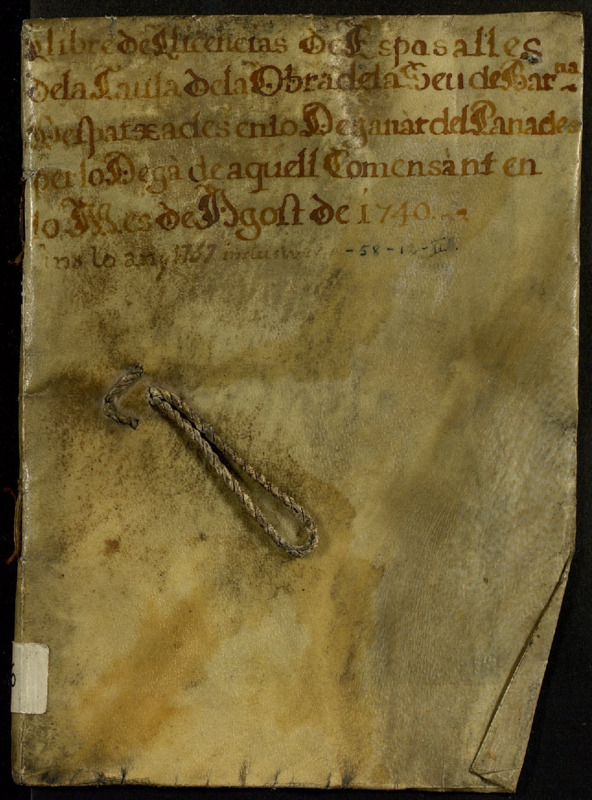 Llibre de Llicencias de Esposalles
de la Taula de la Obra de la Seu de Bar.na
Despatxades en lo Deganat del Panades
per lo Degà de aquell Comensant en
lo Mes de Agost de 1740.
fins lo any 1757 inclusive -58-12-
6